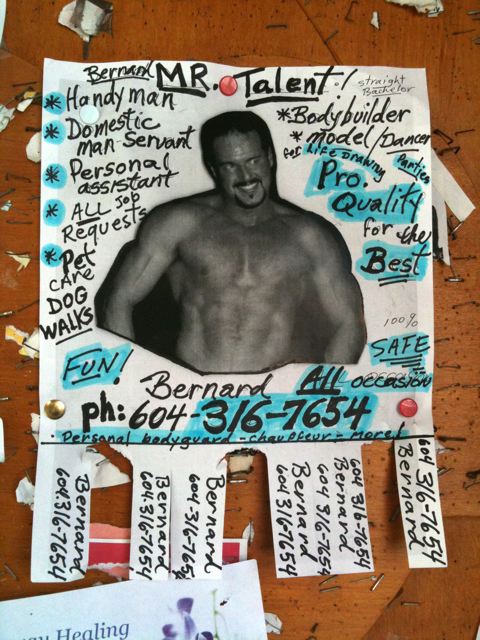 Bernard MR. Talent!
straight
Bachelor
* Handyman
* Domestic
man-servant
* Personal
assistant
* ALL Job
Requests
* Pet
CARE
DOG
WALKS
* Bodybuilder
* model/Dancer
for Life Drawing Parties
Pro.
Quality
for the
Best
100%
SAFE
FUN!
Bernard ALL occasion
ph: 604-316-7654
Personal bodyguard - chauffeur - More!
Bernard
604 316-7654
Bernard
604 316-7654
Bernard
604-316-7654
Bernard
604 316-7654
Bernard
604 316-7654
604 316-7654
Bernard
Healing